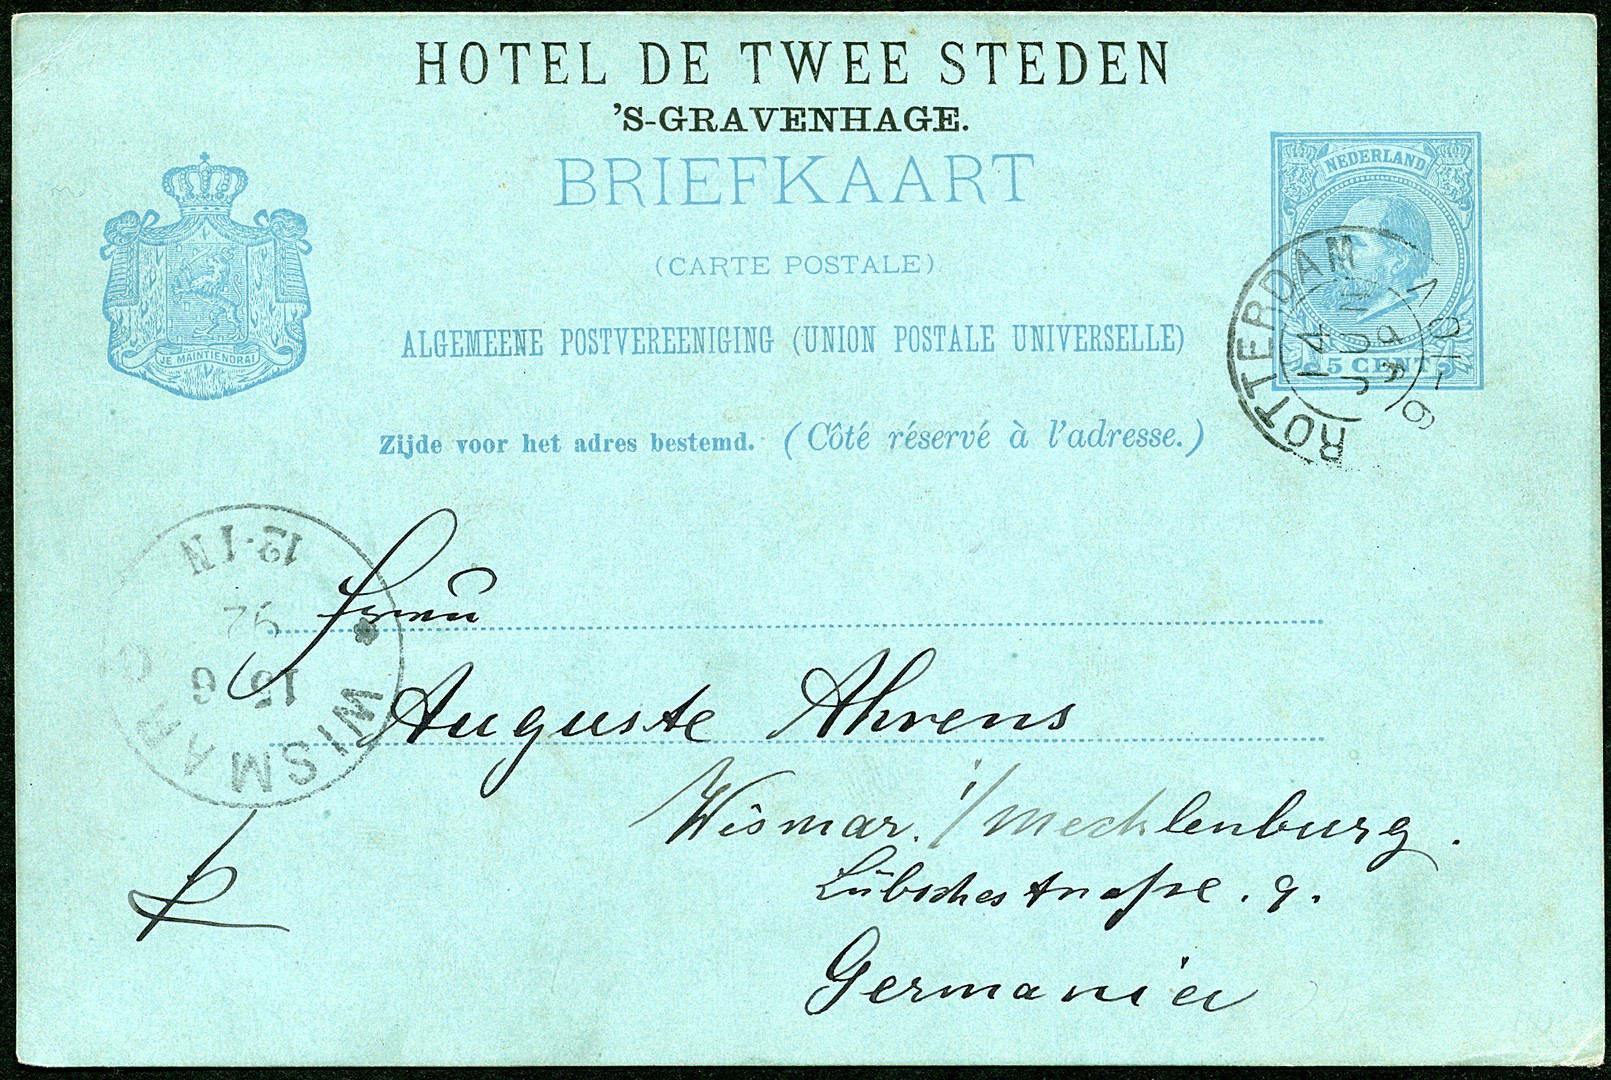 HOTEL DE TWEE STEDEN
'S-GRAVENHAGE.
BRIEFKAART
(CARTE POSTALE)
ALGEMEENE POSTVEREENIGING (UNION POSTALE UNIVERSELLE)
Zijde voor het adres bestemd. (Côté réservé à l'adresse.)
JE MAINTIENDRAI
NEDERLAND
5 CENT
ROTTERDAM
14 JUN
WISMAR
15 6
92
12-1N
Frau
Auguste Ahrens
Wismar. i/Mecklenburg.
Lübschestraße. 9.
Germania